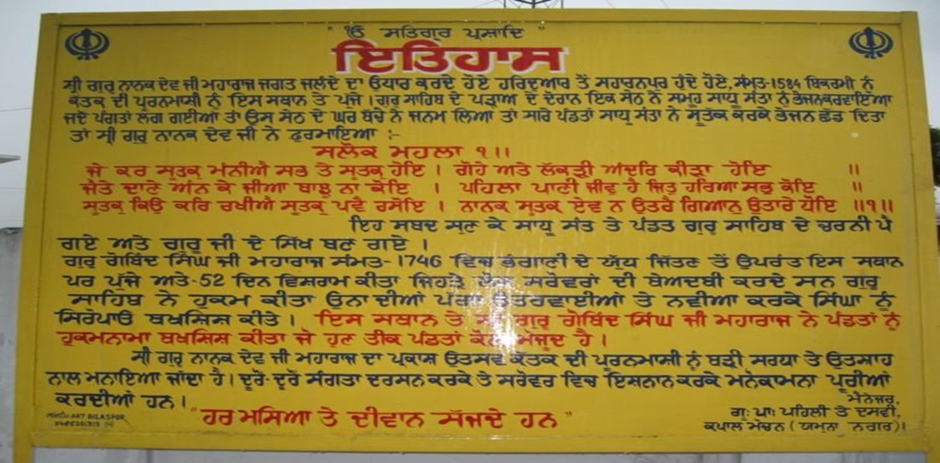 " ੴ ਸਤਿਗੁਰ ਪ੍ਰਸਾਦਿ "
ਇਤਿਹਾਸ
ਸ੍ਰੀ ਗੁਰੂ ਨਾਨਕ ਦੇਵ ਜੀ ਮਹਾਰਾਜ ਜਗਤ ਜਲੰਦੇ ਦਾ ਓਧਾਰ ਕਰਦੇ ਹੋਏ ਹਰਿਦੁਆਰ ਤੋਂ ਸਹਾਰਨਪੁਰ ਹੁੰਦੇ ਹੋਏ, ਸੰਮਤ-1584 ਬਿਕਰਮੀ ਨੂੰ
ਕੱਤਕ ਦੀ ਪੂਰਨਮਾਸੀ ਨੂੰ ਇਸ ਸਥਾਨ ਤੇ ਪੁੱਜੇ । ਗੁਰੂ ਸਾਹਿਬ ਦੇ ਪੜਾਅ ਦੇ ਦੌਰਾਨ ਇਕ ਸੇਠ ਨੇ ਸਮੂਹ ਸਾਧੂ ਸੰਤਾਂ ਨੂੰ ਭੋਜਨ ਕਰਵਾਇਆ
ਜਦੋਂ ਪੰਗਤਾਂ ਲੱਗ ਗਈਆਂ ਤਾਂ ਉਸ ਸੇਠ ਦੇ ਘਰ ਬੱਚੇ ਨੇ ਜਨਮ ਲਿਆ ਤਾਂ ਸਾਰੇ ਪੰਡਤਾਂ ਸਾਧੂ ਸੰਤਾਂ ਨੇ ਸੂਤਕ ਕਰਕੇ ਭੋਜਨ ਛੱਡ ਦਿਤਾ
ਤਾਂ ਸ੍ਰੀ ਗੁਰੂ ਨਾਨਕ ਦੇਵ ਜੀ ਨੇ ਫੁਰਮਾਇਆ :-
ਸਲੋਕ ਮਹਲਾ ੧ ॥
ਜੇ ਕਰ ਸੂਤਕੁ ਮੰਨੀਐ ਸਭ ਤੇ ਸੂਤਕੁ ਹੋਇ । ਗੋਹੇ ਅਤੇ ਲੱਕੜੀ ਅੰਦਰਿ ਕੀੜਾ ਹੋਇ ॥
ਜੇਤੇ ਦਾਣੇ ਅੰਨ ਕੇ ਜੀਆ ਬਾਝੁ ਨਾ ਕੋਇ । ਪਹਿਲਾ ਪਾਣੀ ਜੀਵ ਹੈ ਜਿਤੁ ਹਰਿਆ ਸਭੁ ਕੋਇ ॥
ਸੂਤਕੁ ਕਿਉ ਕਰਿ ਰਖੀਐ ਸੂਤਕੁ ਪਵੈ ਰਸੋਇ । ਨਾਨਕ ਸੂਤਕੁ ਏਵ ਨ ਉਤਰੈ ਗਿਆਨੁ ਉਤਾਰੇ ਧੋਇ ॥੧॥
ਇਹ ਸਬਦ ਸੁਣ ਕੇ ਸਾਧੂ ਸੰਤ ਤੇ ਪੰਡਤ ਗੁਰੂ ਸਾਹਿਬ ਦੇ ਚਰਨੀ ਪੈ
ਗਏ ਅਤੇ ਗੁਰੂ ਜੀ ਦੇ ਸਿੱਖ ਬਣ ਗਏ ।
ਗੁਰੂ ਗੋਬਿੰਦ ਸਿੰਘ ਜੀ ਮਹਾਰਾਜ ਸੰਮਤ-1746 ਵਿਚ ਭੰਗਾਣੀ ਦੇ ਯੁੱਧ ਜਿੱਤਣ ਤੋਂ ਉਪਰੰਤ ਇਸ ਸਥਾਨ
ਪਰ ਪੁੱਜੇ ਅਤੇ-52 ਦਿਨ ਵਿਸ਼ਰਾਮ ਕੀਤਾ ਜਿਹੜੇ ਸਰੋਵਰਾਂ ਦੀ ਬੇਅਦਬੀ ਕਰਦੇ ਸਨ ਗੁਰੂ
ਸਾਹਿਬ ਨੇ ਹੁਕਮ ਕੀਤਾ ਉਨਾ ਦੀਆਂ ਪੱਗਾਂ ਉਤਰਵਾਈਆਂ ਤੇ ਨਵੀਆ ਕਰਕੇ ਸਿੰਘਾਂ ਨੂੰ
ਸਿਰੋਪਾਓ ਬਖਸ਼ਿਸ਼ ਕੀਤੇ । ਇਸ ਸਥਾਨ ਤੇ ਸ੍ਰੀ ਗੁਰੂ ਗੋਬਿੰਦ ਸਿੰਘ ਜੀ ਮਹਾਰਾਜ ਨੇ ਪੰਡਤਾਂ ਨੂੰ
ਹੁਕਮਨਾਮਾ ਬਖਸ਼ਿਸ਼ ਕੀਤਾ ਜੋ ਹੁਣ ਤੀਕ ਪੰਡਤਾਂ ਕੋਲ ਮੌਜੂਦ ਹੈ ।
ਸ੍ਰੀ ਗੁਰੂ ਨਾਨਕ ਦੇਵ ਜੀ ਮਹਾਰਾਜ ਦਾ ਪ੍ਰਕਾਸ਼ ਉਤਸਵ ਕੱਤਕ ਦੀ ਪੂਰਨਮਾਸੀ ਨੂੰ ਬੜੀ ਸ਼ਰਧਾ ਤੇ ਉਤਸ਼ਾਹ
ਨਾਲ ਮਨਾਇਆ ਜਾਂਦਾ ਹੈ । ਦੂਰੋਂ-ਦੂਰੋਂ ਸੰਗਤਾਂ ਦਰਸ਼ਨ ਕਰਕੇ ਤੇ ਸਰੋਵਰ ਵਿਚ ਇਸ਼ਨਾਨ ਕਰਕੇ ਮਨੋਕਾਮਨਾ ਪੂਰੀਆਂ
ਕਰਦੀਆਂ ਹਨ ।
"ਹਰ ਮੱਸਿਆ ਤੇ ਦੀਵਾਨ ਸੱਜਦੇ ਹਨ"
ਮੈਨੇਜਰ,
ਗੁ: ਪਾ: ਪਹਿਲੀ ਤੇ ਦਸਵੀਂ,
ਕਪਾਲ ਮੋਚਨ (ਯਮੁਨਾ ਨਗਰ)।
ART BILASPUR